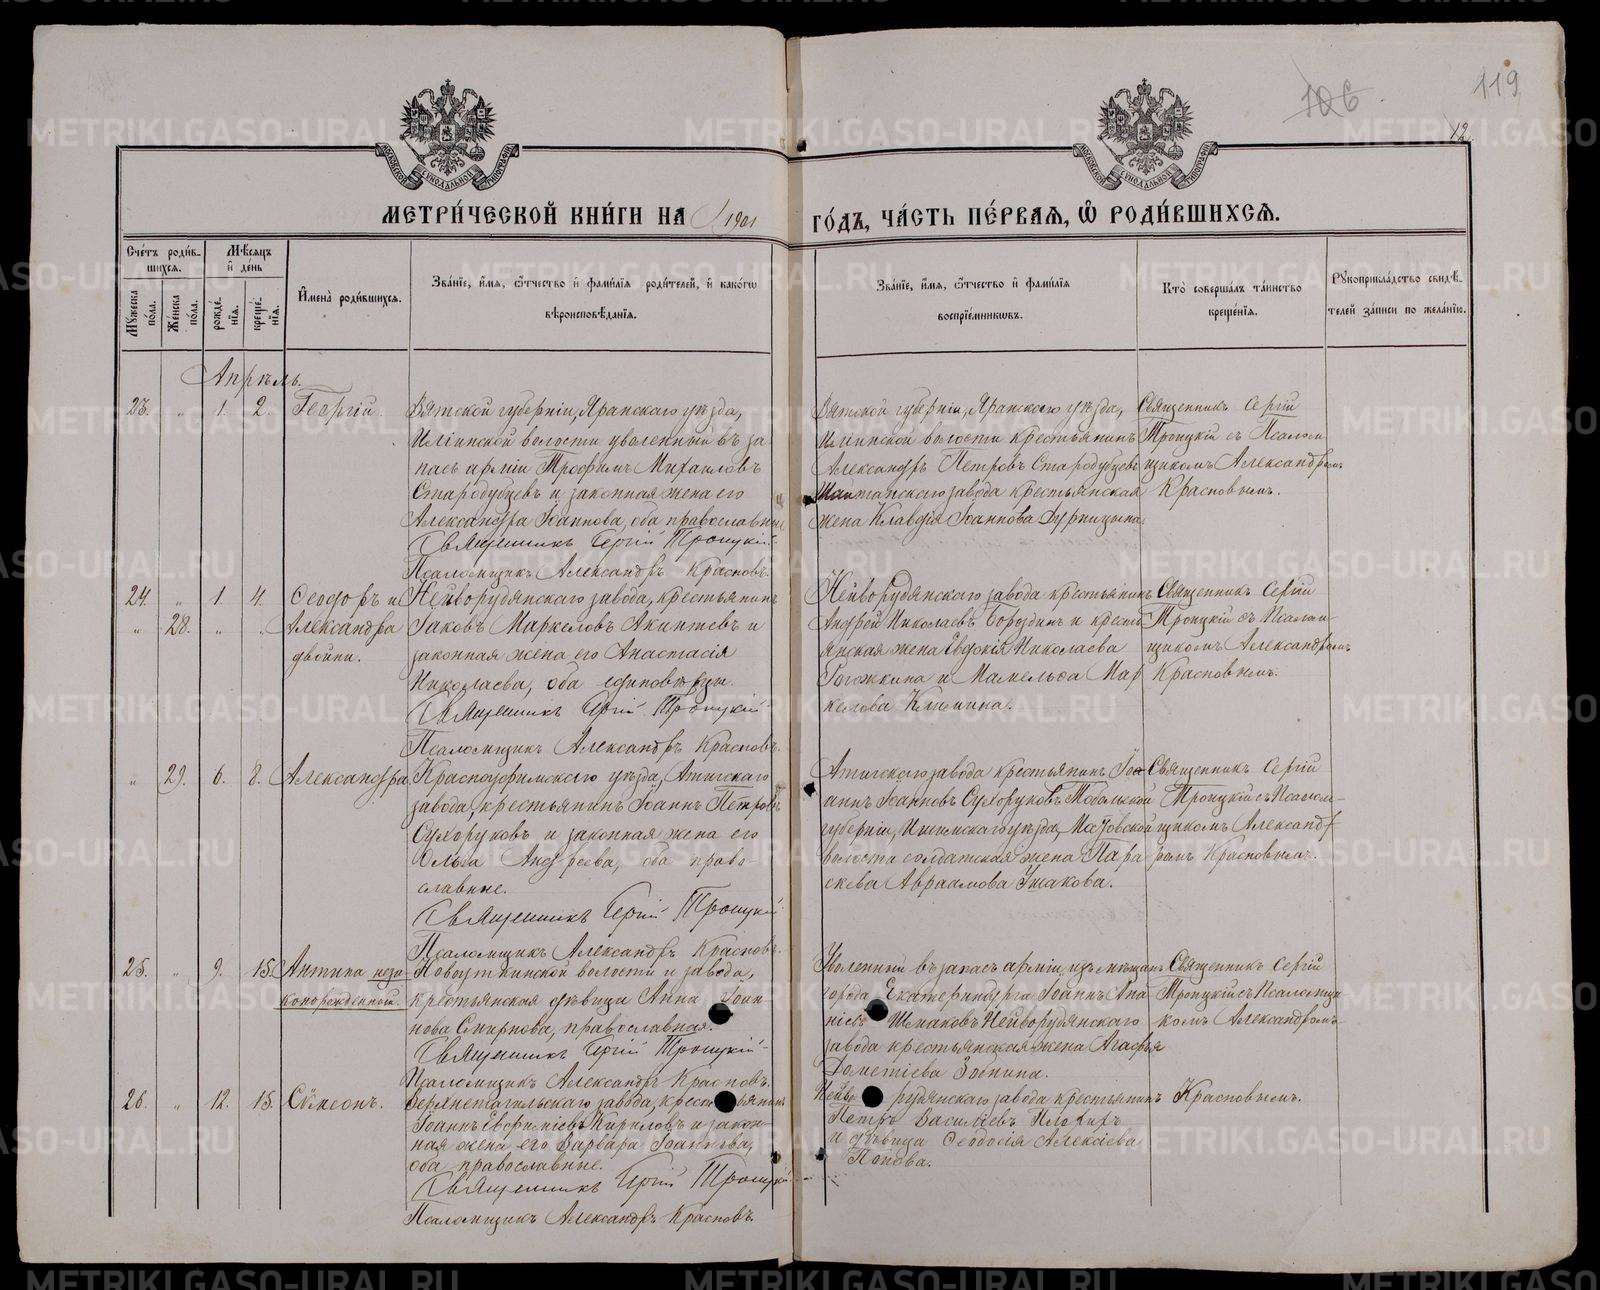 106
119
12
МЕТРИ́ЧЕСКОЙ КНИ́ГИ НА 1901 ГО́ДЪ, ЧА́СТЬ ПЕ́РВАЯ, Ѡ РОДИ́ВШИХСЯ.
Сче́тъ роди́в-
шихся.
Мѣсяцъ
и҆ де́нь
Му́жеска
по́ла.
Же́нска
по́ла.
рожде́-
нїя.
креще́-
нїя.
И҆мена̀ роди́вшихся.
Зва́нїе, и҆́мя, ѻ҆́тчество и҆ фами́лїя роди́телей, и҆ како́гѡ
вѣроисповѣ́данїя.
Зва́нїе, и҆́мя, ѻ҆́тчество и҆ фами́лїя
воспрїе́мникѡвъ.
Кто̀ соверша́лъ та́инство
креще́нїя.
Рꙋкоприкла́дство свидѣ́-
телей за́писи по жела́нїю.
Апрѣль.
23. " 1. 2. Георгій.
Вятской губерніи, Яранскаго уѣзда,
Илгинской волости уволенный въ за-
пасъ арміи Трофимъ Михаиловъ
Стародубцевъ и законная жена его
Александра Іоаннова, оба православные
Священникъ Сергій Троицкій
Псаломщикъ Александръ Красновъ.
Вятской губерніи, Яранскаго уѣзда,
Илгинской волости крестьянинъ
Александръ Петровъ Стародубцевъ
Шайтанскаго завода крестьянская
жена Клавдія Іоаннова Дурницына.
Священникъ Сергій
Троицкій съ Псалом-
щикомъ Александромъ
Красновымъ.
24. " 1. 4. Ѳеодоръ и
" 28. " " Александра
двойни.
Нейворудянскаго завода, крестьянинъ
Іаковъ Маркеловъ Акинтевъ и
законная жена его Анастасія
Николаева, оба единовѣрцы.
Священникъ Сергій Троицкій
Псаломщикъ Александръ Красновъ.
Нейворудянскаго завода крестьянинъ
Андрей Николаевъ Бороздинъ и кресть-
янская жена Евдокія Николаева
Гогожкина и Мамельфа Мар-
келова Климина.
Священникъ Сергій
Троицкій съ Псалом-
щикомъ Александромъ
Красновымъ.
" 29. 6. 8. Александра
Красноуфимскаго уѣзда, Атигскаго
завода, крестьянинъ Іоаннъ Петровъ
Сухоруковъ и законная жена его
Ольга Андреева, оба право-
славные.
Священникъ Сергій Троицкій
Псаломщикъ Александръ Красновъ.
Атигскаго завода крестьянинъ Іоа-
аннъ Іоанновъ Сухоруковъ Тобольской
губерніи, Ишимскаго уѣзда,
волости солдатская жена Пара-
скева Авраамова Ушакова.
Священникъ Сергій
Троицкій съ Псалом-
щикомъ Александ-
ромъ Красновымъ.
25. " 9. 15. Антипа неза-
конорожденный.
Новоуткинской волости и завода,
крестьянская дѣвица Анна Іоан-
нова Смирнова, православная.
Священникъ Сергій Троицкій
Псаломщикъ Александръ Красновъ.
Уволенный въ запасъ арміи, изъ мѣщанъ
города Екатеринбурга Іоаннъ Ана-
ніевъ Шпаковъ Нейворудянскаго
завода крестьянская жена Агафья
Дометіева Зонина.
Священникъ Сергій
Троицкій съ Псаломщи-
комъ Александромъ
Красновымъ.
26. " 12. 15. Сѵмеонъ.
Верхнетагильскаго завода, крестьянинъ
Іоаннъ Евфиміевъ Кириловъ и закон-
ная жена его Варвара Іоаннова,
оба православные.
Священникъ Сергій Троицкій
Псаломщикъ Александръ Красновъ.
Нейворудянскаго завода крестьянинъ
Петръ Василіевъ Плохихъ
и дѣвица Ѳеодосія Алексіева
Попова.
METRIKI.GASO-URAL.RU